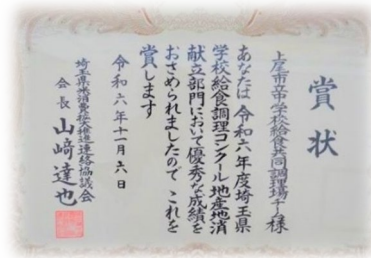 賞状
上尾市立中学校給食共同調理場チーム様
あなたは 令和六年度埼玉県
学校給食調理コンクール地産地消
献立部門において優秀な成績を
おさめられましたので これを
賞します
令和六年十一月六日
埼玉県米消費拡大推進連絡協議会
会長 山﨑達也